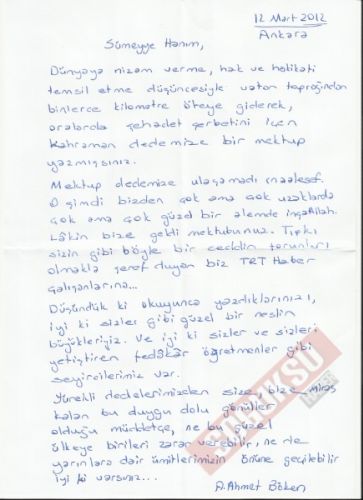 12 Mart 2012
Ankara
Sümeyye Hanım,
Dünyaya nizam verme, hak ve hakikati
temsil etme düşüncesiyle vatan toprağından
binlerce kilometre öteye giderek,
oralarda şehadet şerbetini içen
kahraman dedemize bir mektup
yazmışsınız.
Mektup dedemize ulaşamadı maalesef.
O şimdi bizden çok ama çok uzaklarda
çok ama çok güzel bir alemde inşallah.
Lâkin bize geldi mektubunuz. Tıpkı
sizin gibi böyle bir ceddin torunları
olmakla şeref duyan biz TRT Haber
çalışanlarına...
Düşündük ki okuyunca yazdıklarınızı,
iyi ki sizler gibi güzel bir neslin
büyükleriyiz. Ve iyi ki sizler ve sizleri
yetiştiren fedakâr öğretmenler gibi
seyircilerimiz var.
Yürekli dedelerimizden size, bize miras
kalan bu duygu dolu gönüller
olduğu müddetçe, ne bu güzel
ülkeye birileri zarar verebilir, ne de
yarınlara dair ümitlerimizin önüne geçilebilir
iyi ki varsınız...
A. Ahmet Böken
HABER